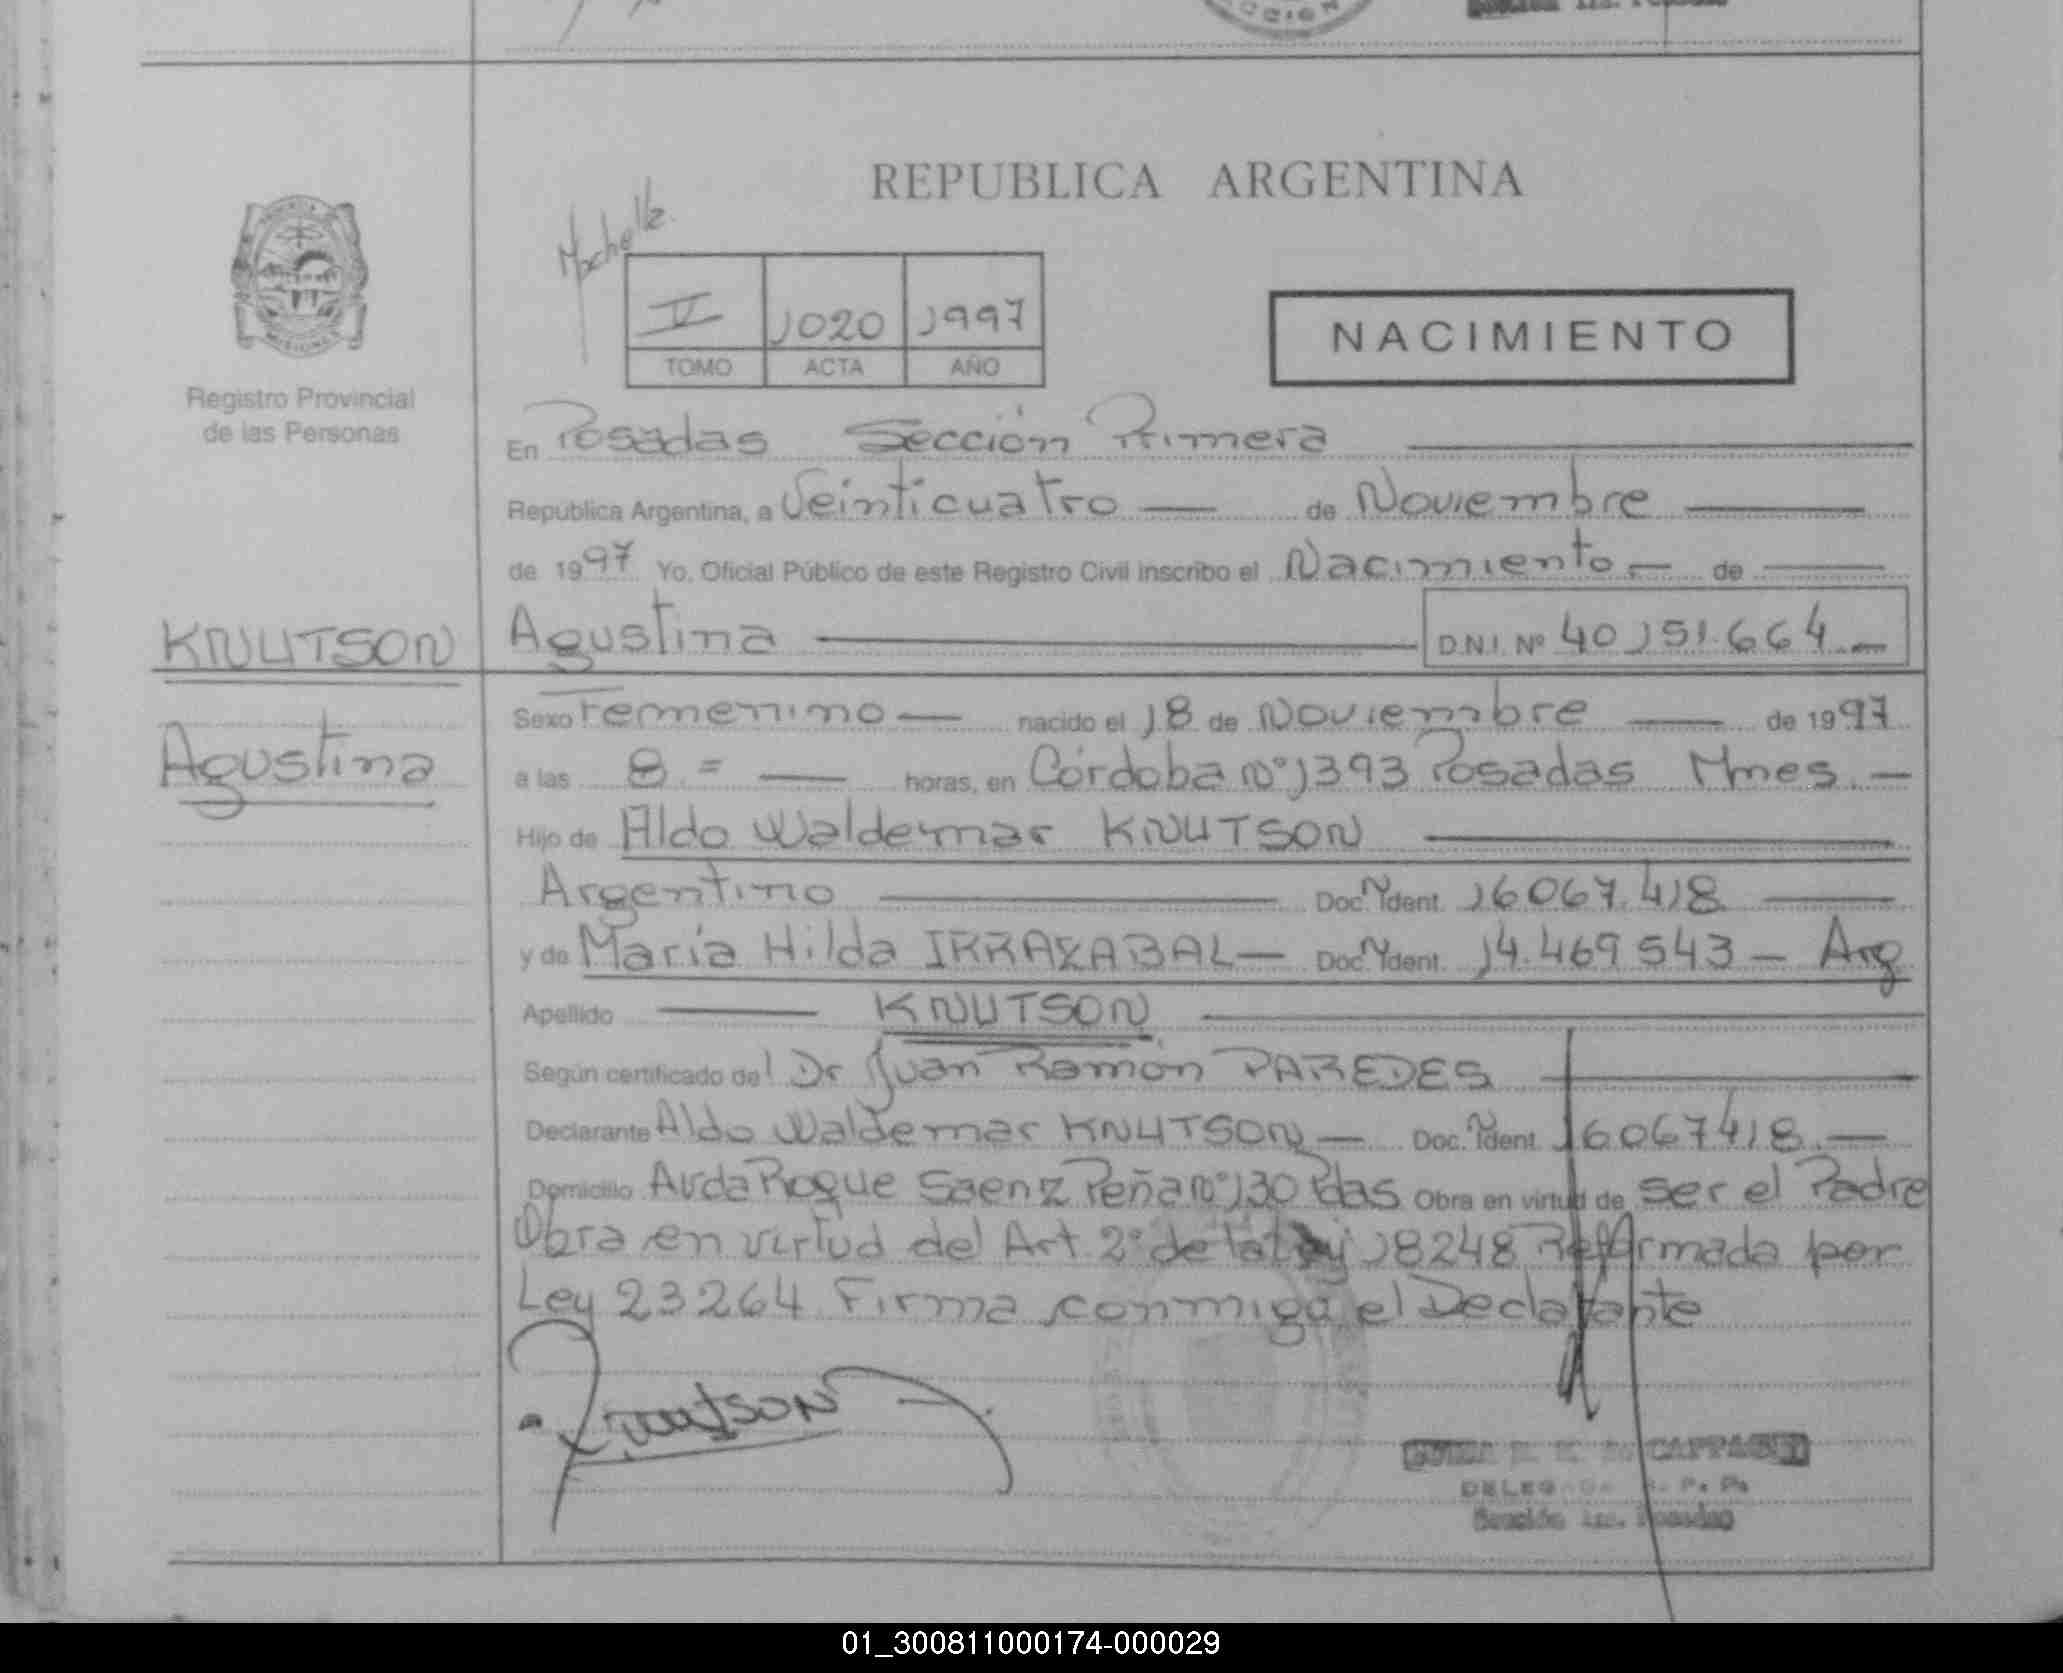 REPUBLICA ARGENTINA
V 1020 1997
TOMO ACTA AÑO
NACIMIENTO
Registro Provincial
de las Personas
En Posadas Sección Primera
Republica Argentina, a Veinticuatro — de Noviembre
de 1997 Yo, Oficial Público de este Registro Civil inscribo el Nacimiento.— de
KNUTSON
Agustina
Agustina D.N.I. Nº 40151.664.—
Sexo Femenino — nacido el 18 de Noviembre — de 1997
a las 8 = — horas, en Córdoba nº 1393 Posadas Mnes.—
Hijo de Aldo Waldemar KNUTSON
Argentino — Doc. Ident. 16067.418 —
y de María Hilda IRRAZABAL — Doc. Ident. 14.469543 — Arg
Apellido — KNUTSON
Según certificado del Dr Juan Ramón PAREDES
Declarante Aldo Waldemar KNUTSON — Doc. Ident. 16067418.—
Domicilio Avda Roque Saenz Peña nº 130 Pdas Obra en virtud de ser el Padre
Obra en virtud del Art 2º de la Ley 18248 Reformada por
Ley 23264 Firma conmigo el Declarante
Knutson
Sección 1ra. Posadas
01_300811000174-000029